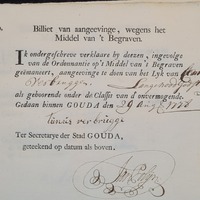 Billiet van aangeevinge, wegens het
Middel van 't Begraven.
Ik ondergeschreeve verklaare by deezen, ingevolge
van de Ordonnantie op 't Middel van 't Begraven
geëmaneert, aangeevinge te doen van het Lyk van
Verbrugge
als gehoorende onder de Classis van d'onvermogende.
Gedaan binnen GOUDA den 29 Aug
tunis verbrugge
Ter Secretarye der Stad GOUDA,
geteekend op datum als boven.